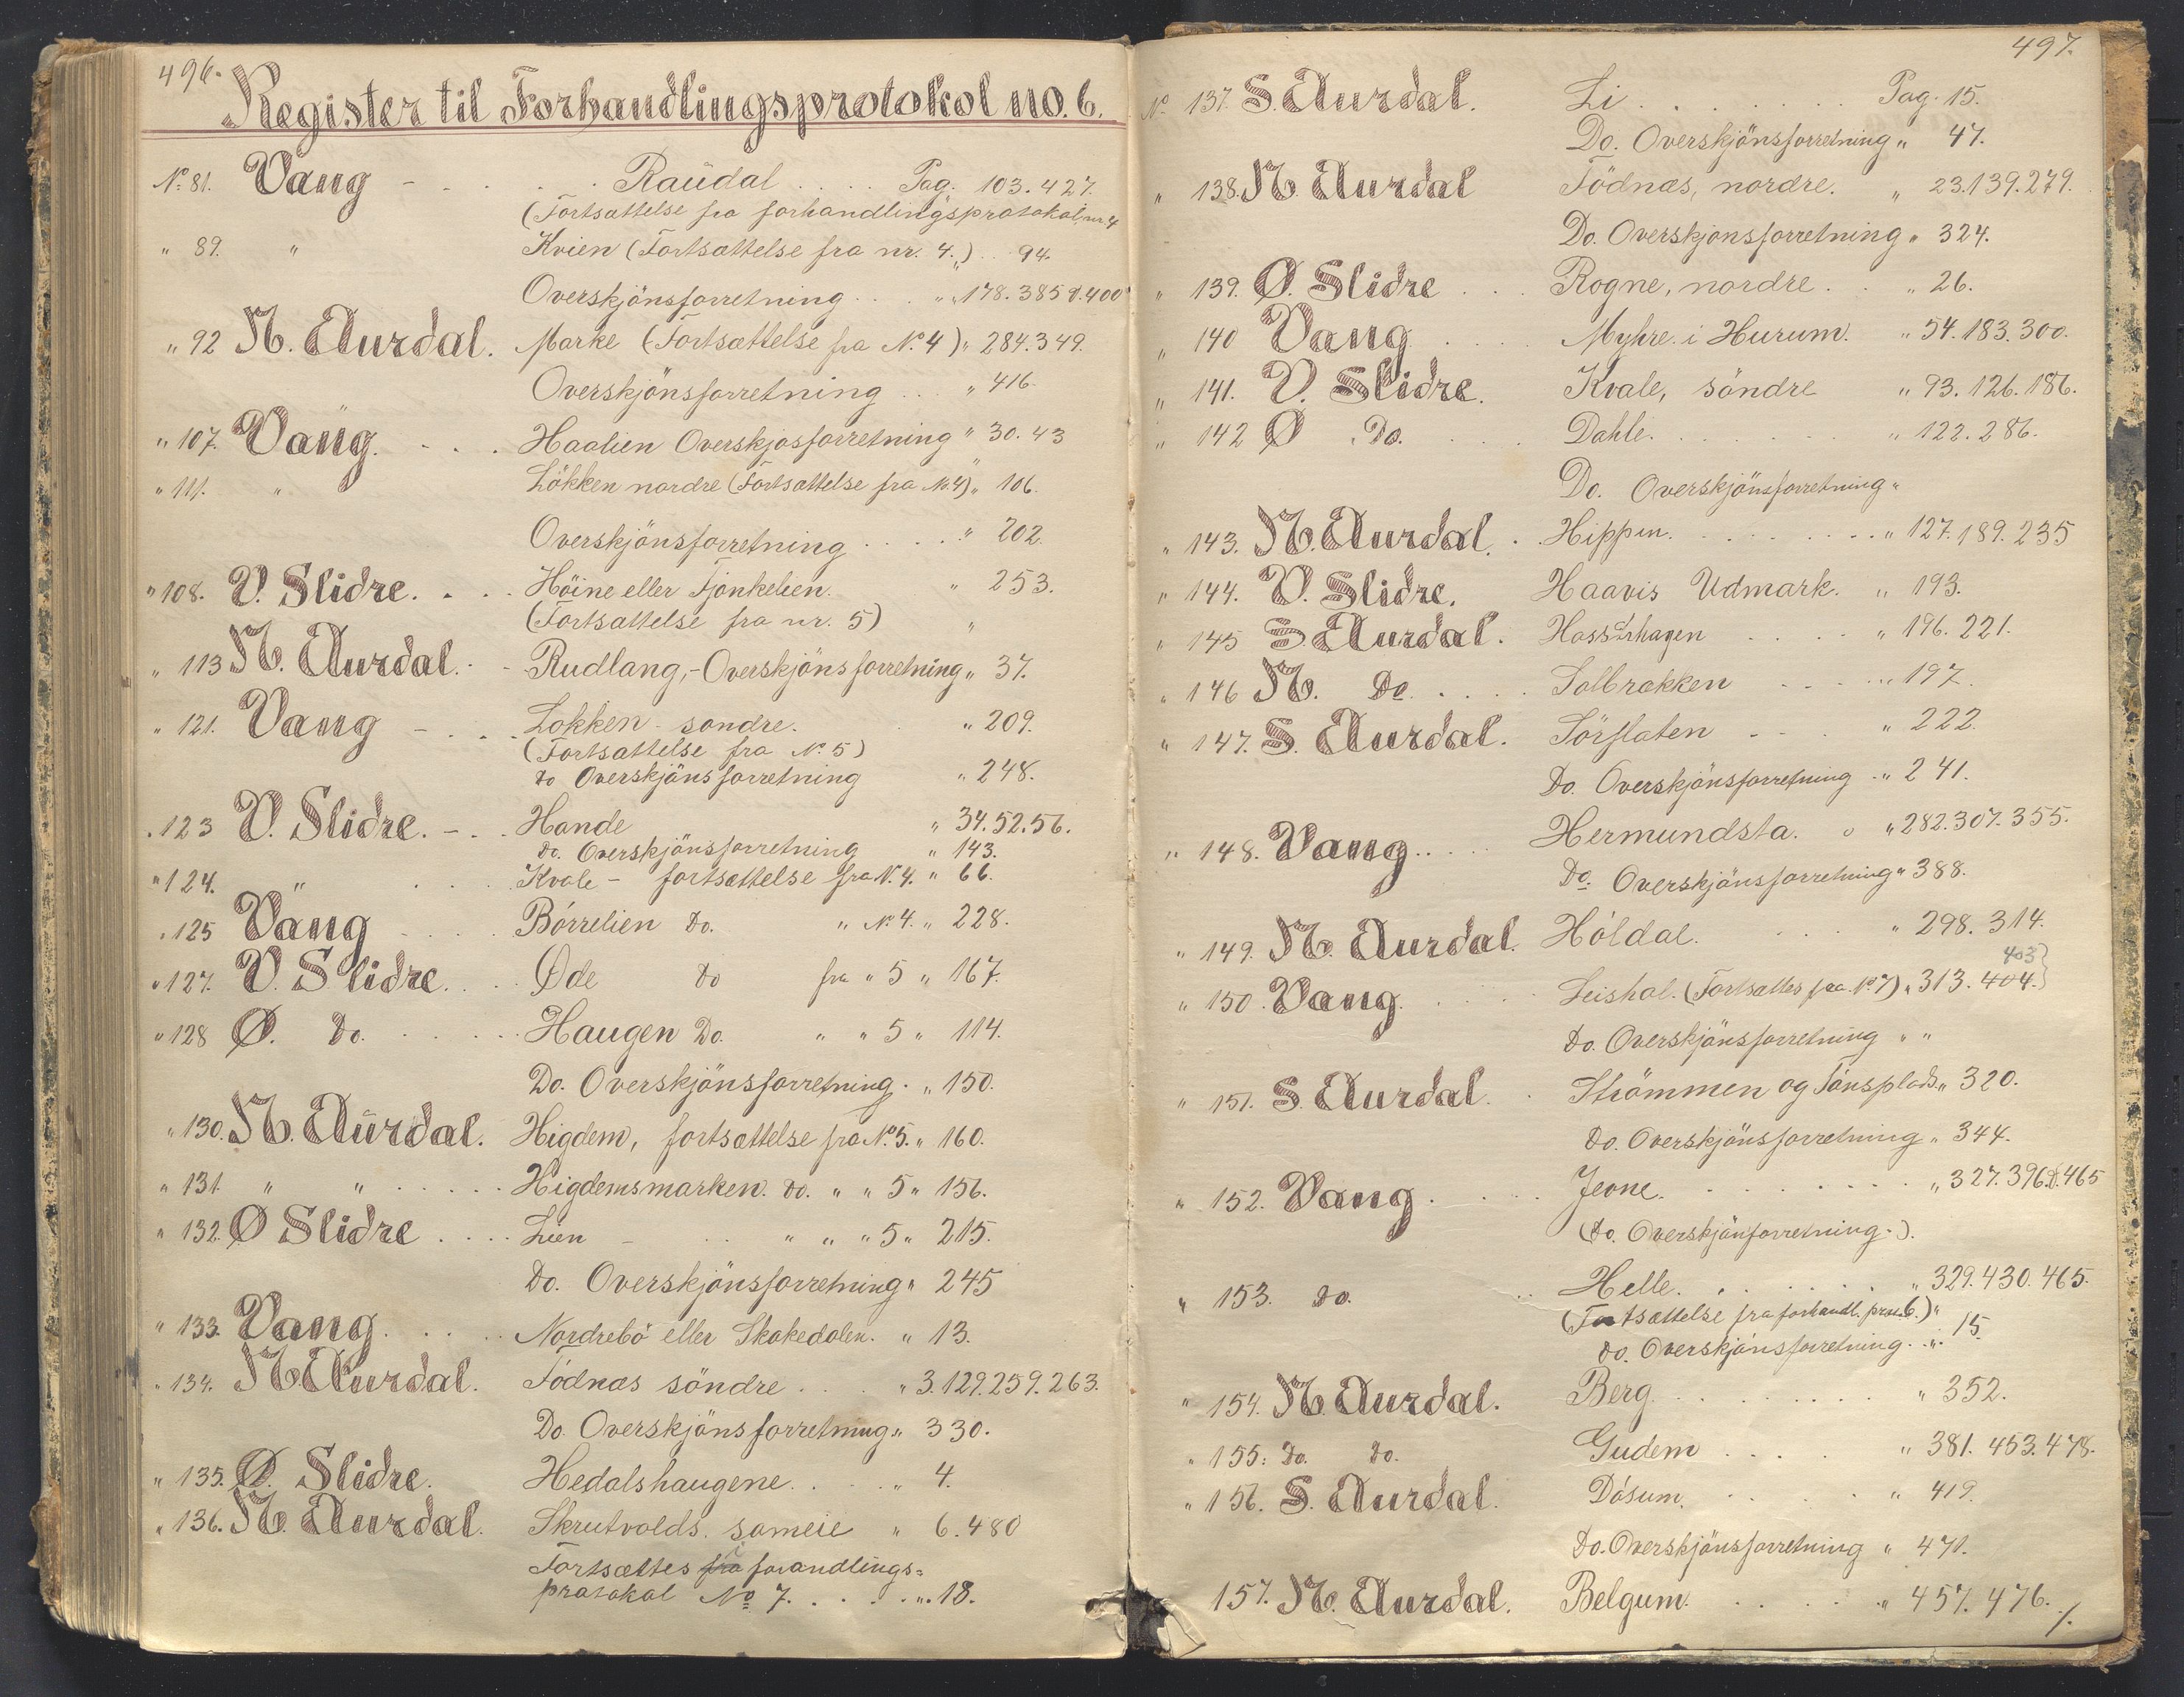 496.
Register til Forhandlingsprotokol no. 6.
No. 81. Vang - . . . . Raudal . . . . Pag. 103. 427.
(Fortsættelse fra forhandlingsprotokol nr. 4
" 89. " Kvien (Fortsættelse fra nr. 4.) " . . 94.
Overskjönsforretning . . . " 178. 385 & 400
" 92 N. Aurdal. Marke (Fortsættelse fra No 4) " 284. 349.
Overskjönsforretning . . . " 416.
" 107. Vang. - . . . Haalien Overskjösforretning " 30. 43
" 111. " Lökken nordre (Fortsættelse fra No. 4) " 106.
Overskjönsforretning . . . . " 202.
" 108. V. Slidre. . . . Höine eller Fjonkelien. " 253.
(Fortsættelse fra nr. 5) "
" 113 N. Aurdal. - - Rudlang, - Overskjönsforretning " 37.
" 121. Vang - . . . Lokken - sondre. " 209.
(Fortsættelse fra No. 5)
do Overskjönsforretning " 248.
" 123 V. Slidre. - . . Hande " 34. 52. 56.
do. Overskjönsforretning " 143.
" 124. " . . . Kvale - fortsættelse fra N. 4. " 66.
" 125 Vang - . . . Börrelien do. " No. 4. " 228.
" 127. V. Slidre. . . . Øde do fra " 5 " 167.
" 128 Ø. do. . . . . Haugen Do. " " 5 " 114.
Do. Overskjönsforretning . " 150.
" 130. N. Aurdal. Higdem, fortsættelse fra No. 5. " 160.
" 131. " " . . . . . Higdemsmarken. do. " " 5 " 156.
" 132. Ø Slidre . . . . Lien - . . " " " 5 " 215.
Do. Overskjönsforretning " 245
" 133. Vang. . . . . Nordrebö eller Skakedalen. " 13.
" 134. N Aurdal. Födnæs söndre . . . . " 3. 129. 259. 263.
Do. Overskjönsforretning " 330.
" 135. Ø. Slidre. Hedalshaugene . . . . " 4.
" 136. N. Aurdal. Skrutvolds. sameie " 6. 480
Fortsættes i forandlings=
protokol No 7. . . . . . " . 18.
497.
No. 137. S. Aurdal. Li . . . . . . . . Pag. 15.
Do. Overskjönsforretning " 47.
" 138. N. Aurdal Födnæs, nordre. " 23. 139. 279.
Do. Overskjonsforretning " 324.
" 139. Ø. Slidre . . . Rogne, nordre . . " 26.
" 140 Vang . . . . Myhre i Hurum. " 54. 183. 300.
" 141. V. Slidre. Kvale, söndre " 93. 126. 186.
" 142 Ø . Do. . . . . Dahle. . . . . . . . " 122. 286.
Do. Overskjönsforretning "
" 143. N. Aurdal. . Hippin. . . . . . . . . " 127. 189. 235
" 144. V. Slidre. Haavis Udmark. " 193.
" 145 S. Aurdal. Hassørhagen . . . . " 196. 221.
" 146 N. Do. . . . . Solbrækken . . . . . " 197
" 147. S. Aurdal. Sörflaten - - . " 222.
Do. Overskjönsforretning - " 241.
" 148. Vang. . . . . Hermundsta. " 282. 307. 355.
Do. Overskjönsforretning " 388.
" 149. N. Aurdal. Höldal. . . . " 298. 314.
403
" 150. Vang. . . . . Leishol. (Fortsættes fra No 7) " 313. 404.
Do. Overskjönsforretning " "
" 151. S. Aurdal. . Strömmen og Tönsplads. " 320.
do. Overskjönsforretning " 344.
" 152. Vang. . . . . Jevne. . . . . . . . . " 327. 396. & 465
(do. Overskjönforretning - ).
" 153. do. . . Helle. . . . . . . " 329. 430. 465.
(Fortsættelse fra forhandl. prot. 6.) "
do. Overskjönsforretning . . " . 15.
" 154. N. Aurdal. Berg. . . . . . . . " 352.
" 155. Do. Do. Gudem . . . . " 381. 453. 478.
" 156. S. Aurdal. Dösum. . . . . . " 419.
Do. Overskjönsforretning " 471.
157. N. Aurdal. Belgum. . . . . . . " 457. 476. /.